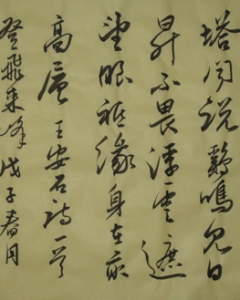 塔聞說鷄鳴見日
昇不畏浮雲遮
望眼祗緣身在最
高層王安石詩一首
登飛来峰戊子春月